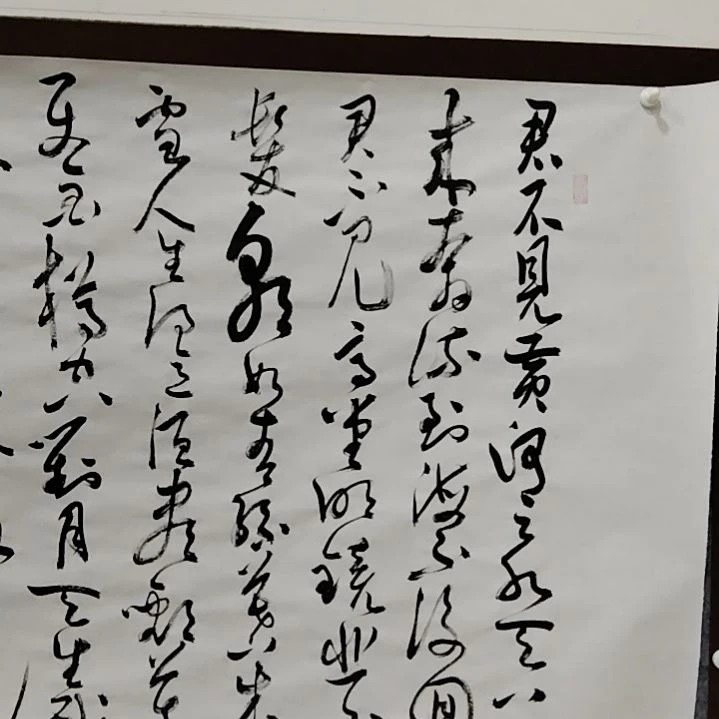 君不見黄河之水天上
来奔流到海不復回
君不見高堂明鏡悲白
髮朝如青絲暮成
雪人生得意須盡歡莫
使金樽空對月天生我